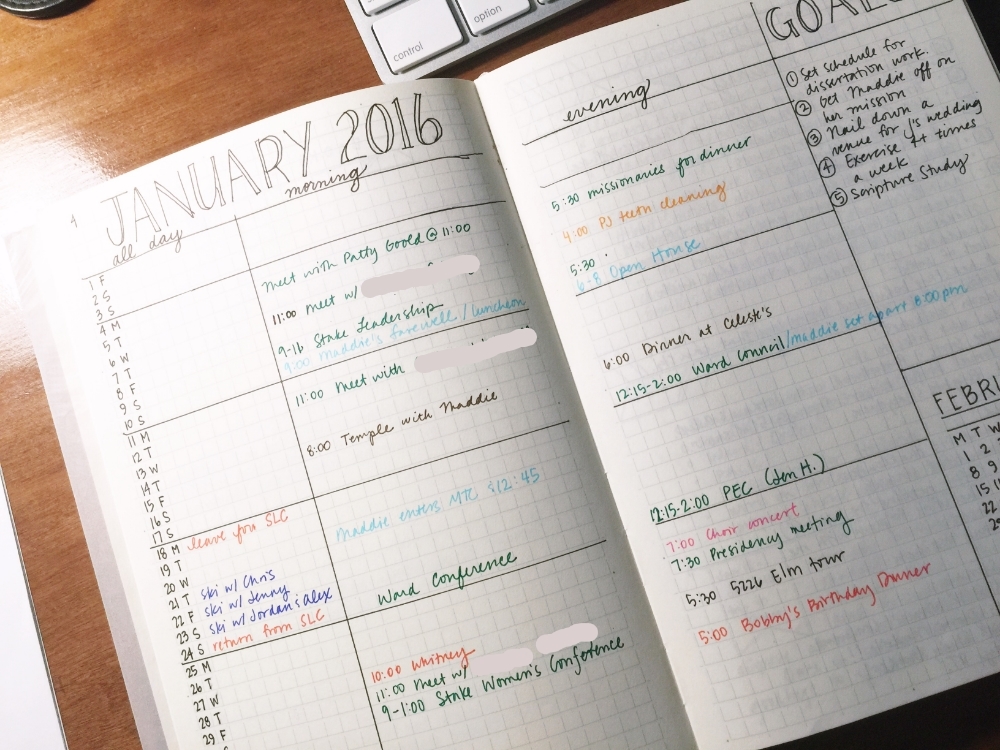 control
option
4
JANUARY 2016
all day
morning
1 F
2 S
3 S
4 M
5 T
6 W
7 T
8 F
9 S
10 S
11 M
12 T
13 W
14 T
15 F
16 S
17 S
18 M leave for SLC
19 T
20 W
21 T ski w/ Chris
22 F ski w/ Jenny
23 S ski w/ Jordan & alex
24 S return from SLC
25 M
26 T
27 W
28 T
29 F
meet with Patty Goold @ 11:00
11:00 meet w/
9-16 Stake Leadership
9:00 Maddie's farewell / luncheon
11:00 meet with
8:00 Temple with Maddie
Maddie enters MTC @ 12:45
Ward Conference
10:00 Whitney
11:00 meet w/
9-1:00 Stake Women's Conference
evening
5:30 missionaries for dinner
4:00 PJ teeth cleaning
5:30
6-8 Open House
6:00 Dinner at Celeste's
12:15-2:00 Ward Council/maddie set apart 8:00pm
12:15-2:00 PEC (Jen H.)
7:00 Choir concert
7:30 Presidency meeting
5:30 5226 Elm tour
5:00 Bobby's Birthday Dinner
GOALS
① Set schedule for
dissertation work.
② Get Maddie off on
her mission
③ Nail down a
venue for J's wedding
④ Exercise 4+ times
a week
⑤ Scripture Study
FEBRU
M T W
1 2
8 9
15 1
22